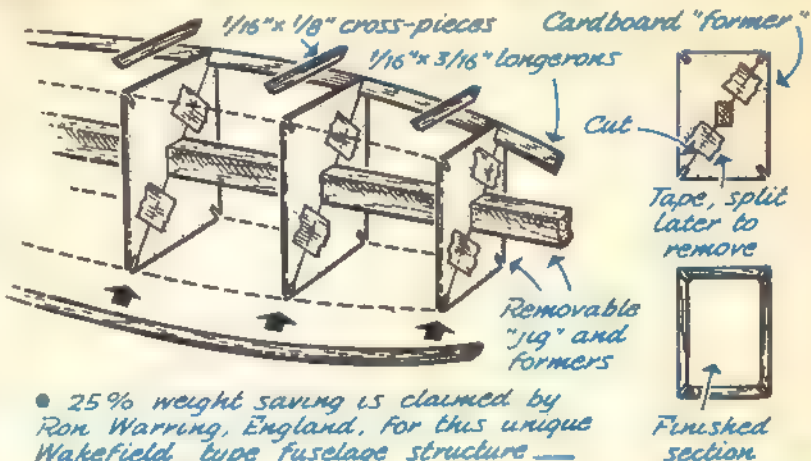 1/16" x 1/8" cross-pieces
Cardboard "former"
1/16" x 3/16" longerons
Cut
Tape, split
later to
remove
Removable
"jig" and
formers
Finished
section
● 25% weight saving is claimed by
Ron Warring, England, for this unique
Wakefield type fuselage structure —